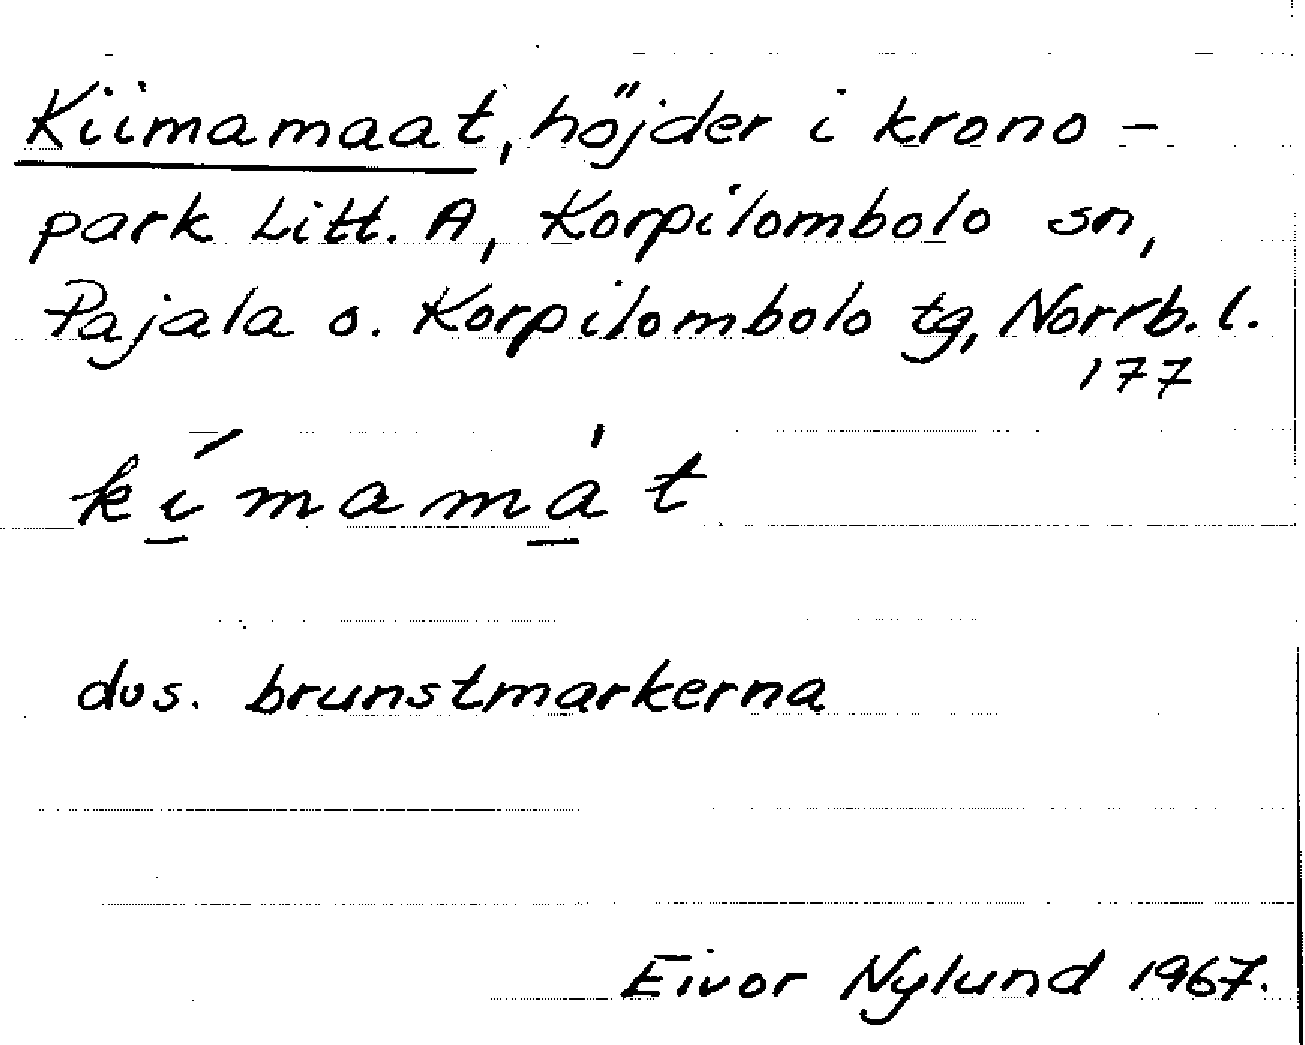 Kiimamaat, höjder i krono-
park Litt. A, Korpilombolo sn,
Pajala o. Korpilombolo tg, Norrb. l.
177
ḵí̱mamá̱t
dvs. brunstmarkerna
Eivor Nylund 1967.